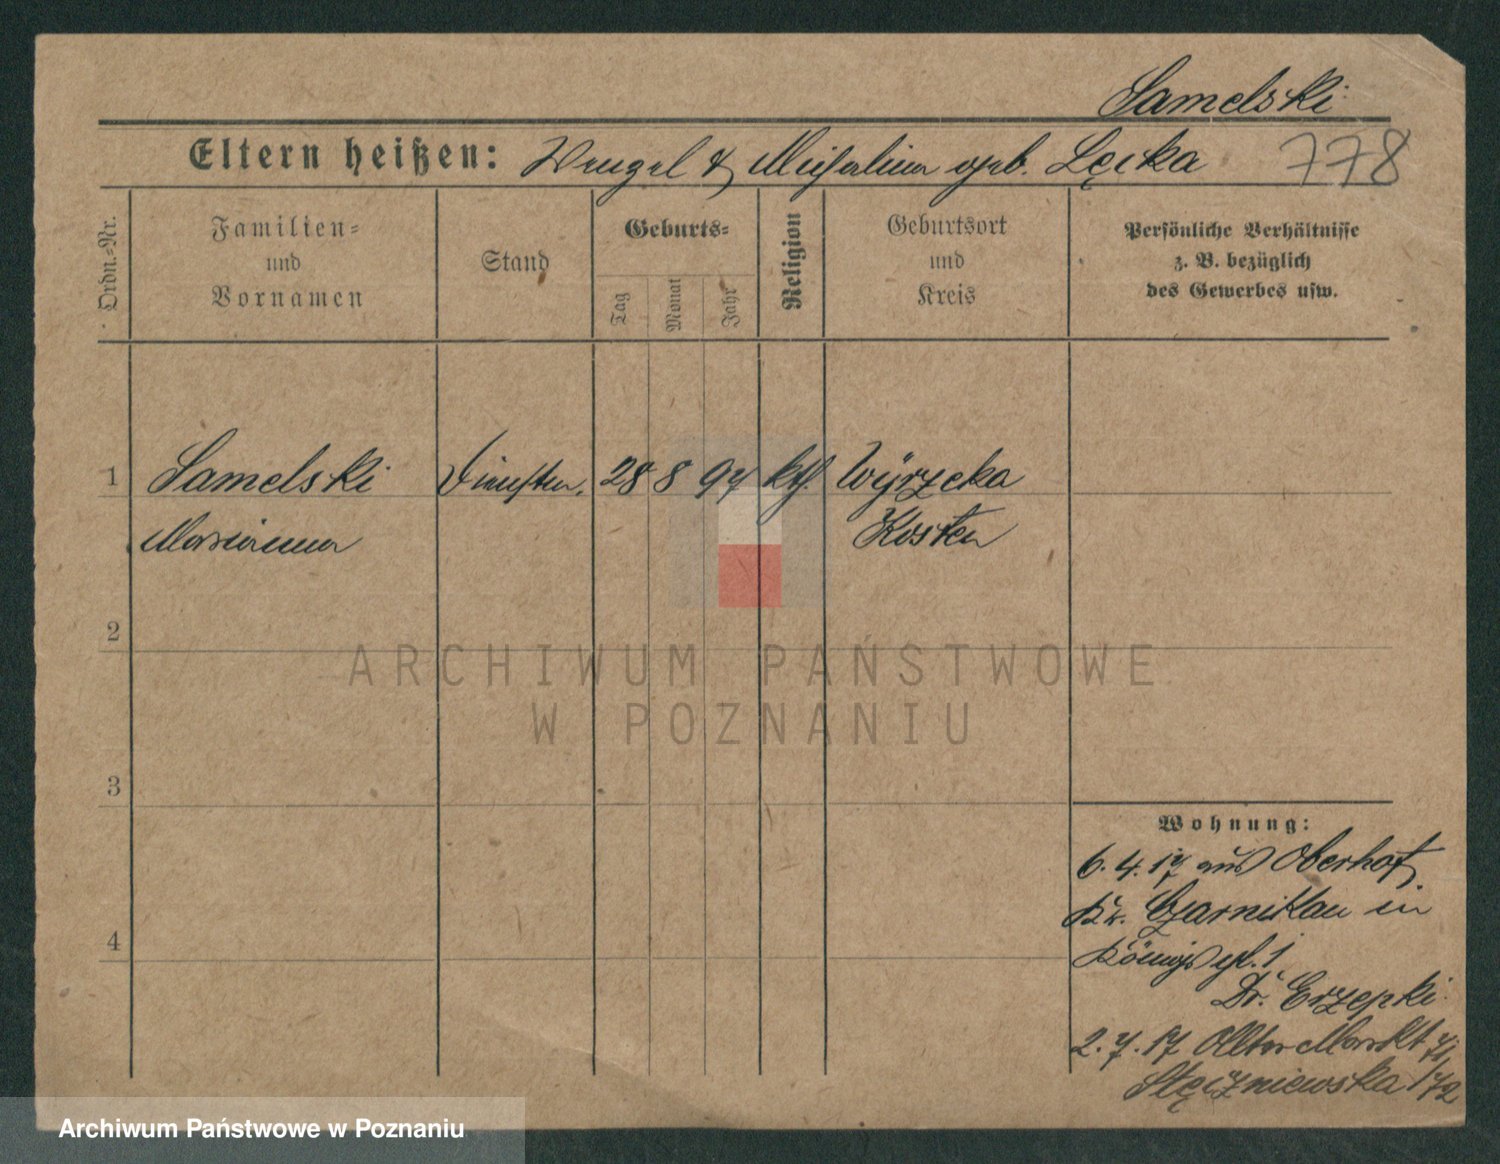 Samelski
Eltern heißen: Wenzel & Michalina geb. Łęcka 778
Ordn.-Nr.
Familien-
und
Vornamen
Stand
Geburts-
Tag
Monat
Jahr
Religion
Geburtsort
und
Kreis
Persönliche Verhältnisse
z. B. bezüglich
des Gewerbes usw.
1 Samelski 28 8 97 kth. Wyrzeka
Marianna Kosten
2
3
4
Wohnung:
6.4.17 aus Oberhof
Kr. Czarnikau in
Königspl. 1
Dr. Erzepki
2.7.17 Alter Markt 71/72
Stęczniewska
ARCHIWUM PAŃSTWOWE
W POZNANIU
Archiwum Państwowe w Poznaniu